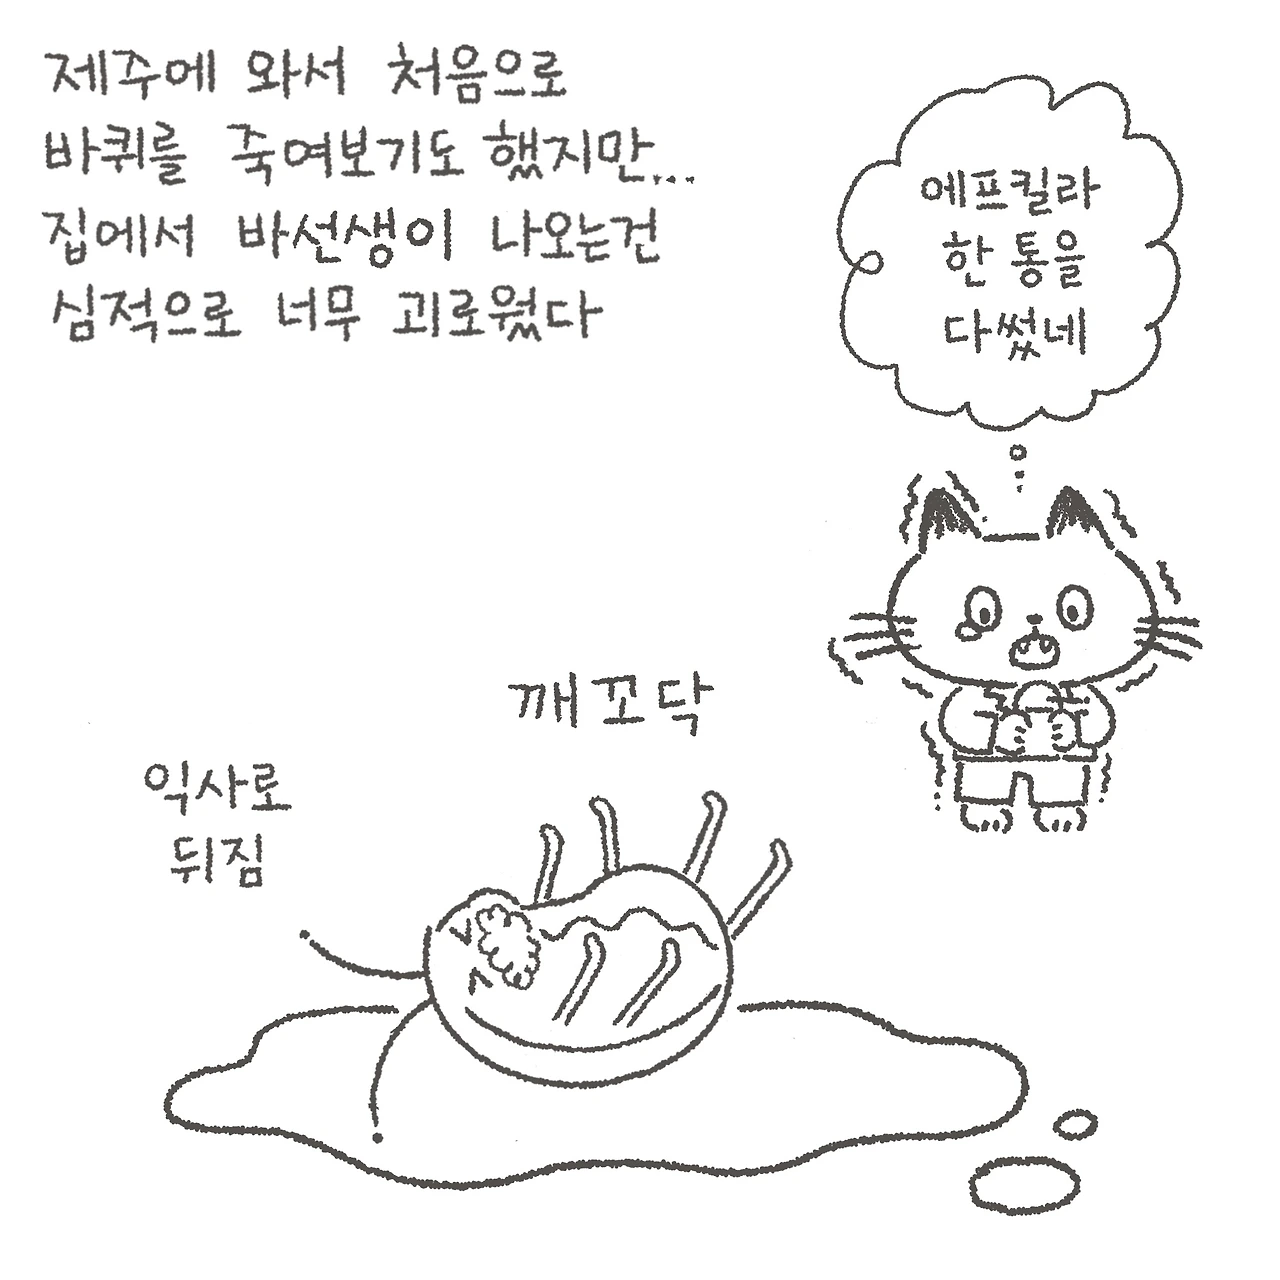 제주에 와서 처음으로
바퀴를 죽여보기도 했지만...
집에서 바선생이 나오는건
심적으로 너무 괴로웠다
에프킬라
한 통을
다썼네
깨꼬닥
익사로
뒤짐